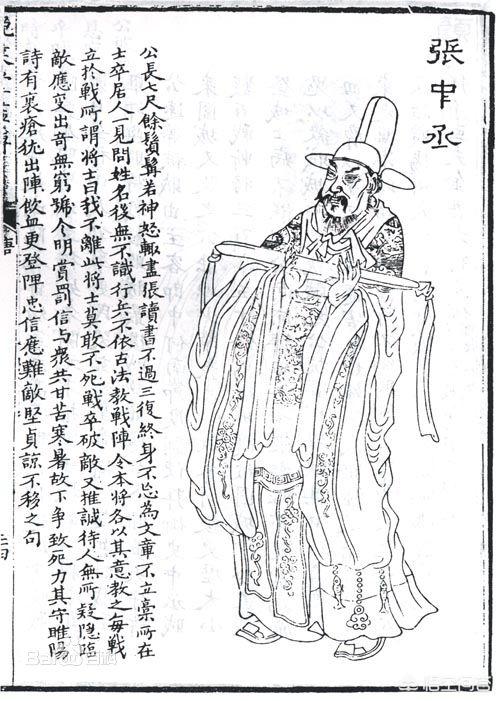 張中丞
公長七尺餘鬚髯若神怒輒盡張讀書不過三復終身不忘為文章不立稾所在
士卒居人一見問姓名後無不識行兵不依古法教戰陣令本將各以其意教之每戰
立於戰所謂將士曰我不離此將士莫敢不死戰卒破敵又推誠待人無所疑隱臨
敵應變出奇無窮號令明賞罰信与衆共甘苦寒暑故下爭致死力其守睢陽
詩有裹瘡犹出陣飲血更登陴忠信應難敵堅貞諒不移之句
唐
Baidu百科
悟空问答